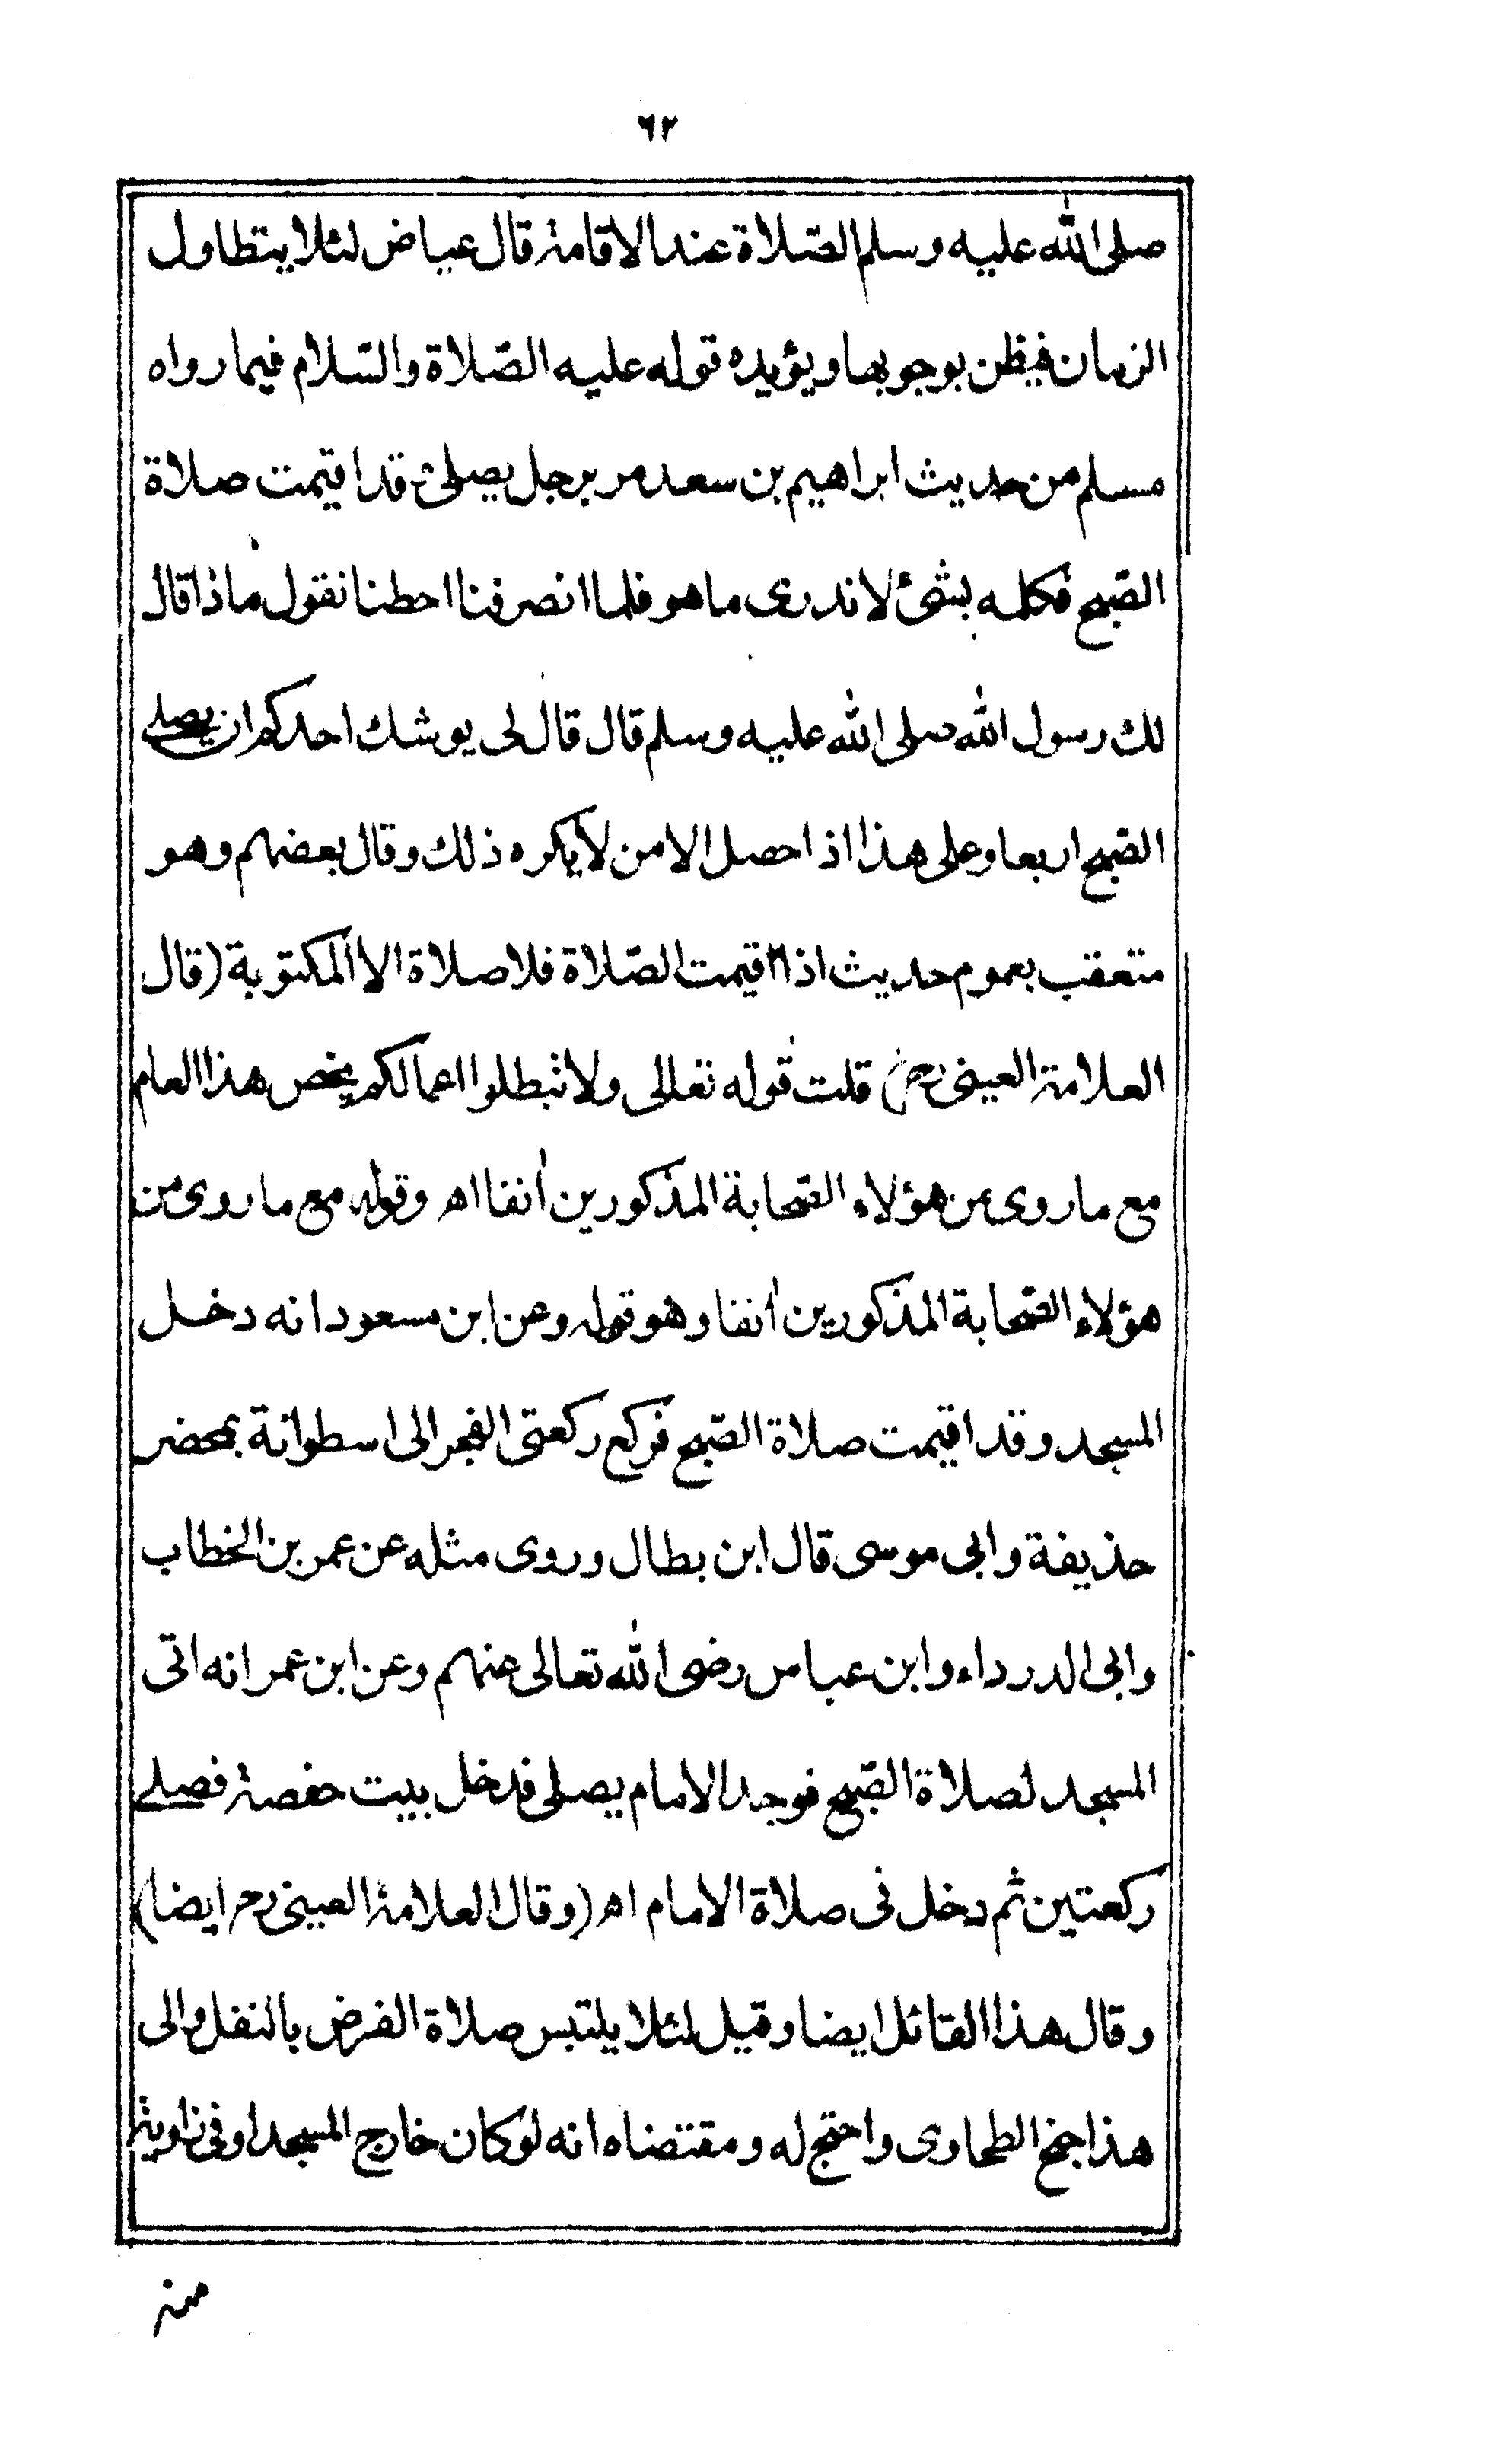 ٦٢
صلى الله عليه وسلم الصّلاة عند الاقامة قال عياض لئلا يتطاول
الزمان فيظن بوجوبها ويؤيده قوله عليه الصّلاة والسّلام فيما رواه
مسلم من حديث ابراهيم بن سعد مر برجل يصلى وقد اقيمت صلاة
الصّبح فكلمه بشئ لا ندرى ما هو فلما انصرفنا احطنا نقول ماذا قال
لك رسول الله صلى الله عليه وسلم قال قال لى يوشك احدكم ان يصلى
الصّبح اربعا وعلى هذا اذا حصل الامن لا يكره ذلك وقال بعضهم وهو
متعقب بعموم حديث اذا اقيمت الصّلاة فلا صلاة الا المكتوبة (قال
العلامة العينى رح) قلت قوله تعالى ولا تبطلوا اعمالكم يخص هذا العام
مع ما روى عن هؤلاء الصّحابة المذكورين أنفا اه وقوله مع ما روى من
هؤلاء الصّحابة المذكورين أنفا وهو قوله وعن ابن مسعود انه دخل
المسجد وقد اقيمت صلاة الصّبح فركع ركعتى الفجر الى اسطوانة بمحضر
حذيفة وابى موسى قال ابن بطال وروى مثله عن عمر بن الخطاب
وابى الدرداء وابن عباس رضى الله تعالى عنهم وعن ابن عمر انه اتى
المسجد لصلاة الصّبح فوجد الامام يصلى فدخل بيت حفصة فصلى
ركعتين ثم دخل فى صلاة الامام اه (وقال العلامة العينى رح ايضا)
وقال هذا القائل ايضا وقيل لئلا يلتبس صلاة الفرض بالنفل والى
هذا جنح الطحاوى واحتج له ومقتضاه انه لو كان خارج المسجد او فى زاوية
منه